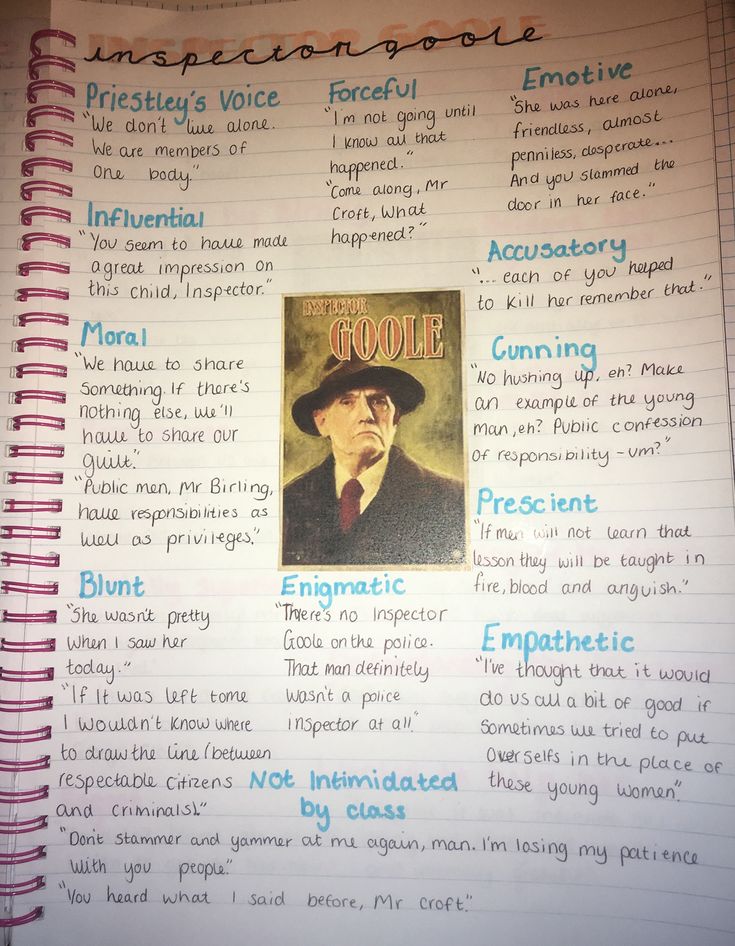 inspector goole
Priestley's Voice
"We don't live alone.
We are members of
One body."
Forceful
"I'm not going until
I know all that
happened."
"Come along, Mr
Croft, What
happened?"
Emotive
"She was here alone,
friendless, almost
penniless, desperate...
And you slammed the
door in her face."
Influential
"You seem to have made
a great impression on
this child, Inspector."
Accusatory
"... each of you helped
to kill her remember that."
Moral
"We have to share
Something. If there's
nothing else, we'll
have to share our
guilt."
"Public men, Mr Birling,
have responsibilities as
well as privileges."
INSPECTOR
GOOLE
Cunning
"No hushing up, eh? Make
an example of the young
man, eh? Public confession
of responsibility - um?"
Prescient
"If men will not learn that
lesson they will be taught in
fire, blood and anguish."
Blunt
"She wasn't pretty
when I saw her
today."
"If It was left to me
I wouldn't know where
to draw the line (between
respectable citizens
and criminals)."
Enigmatic
"There's no Inspector
Goole on the police.
That man definitely
wasn't a police
inspector at all."
Empathetic
"I've thought that it would
do us all a bit of good if
sometimes we tried to put
Ourselfs in the place of
these young women".
Not Intimidated
by class
"Don't stammer and yammer at me again, man. I'm losing my patience
with you people."
"You heard what I said before, Mr Croft."